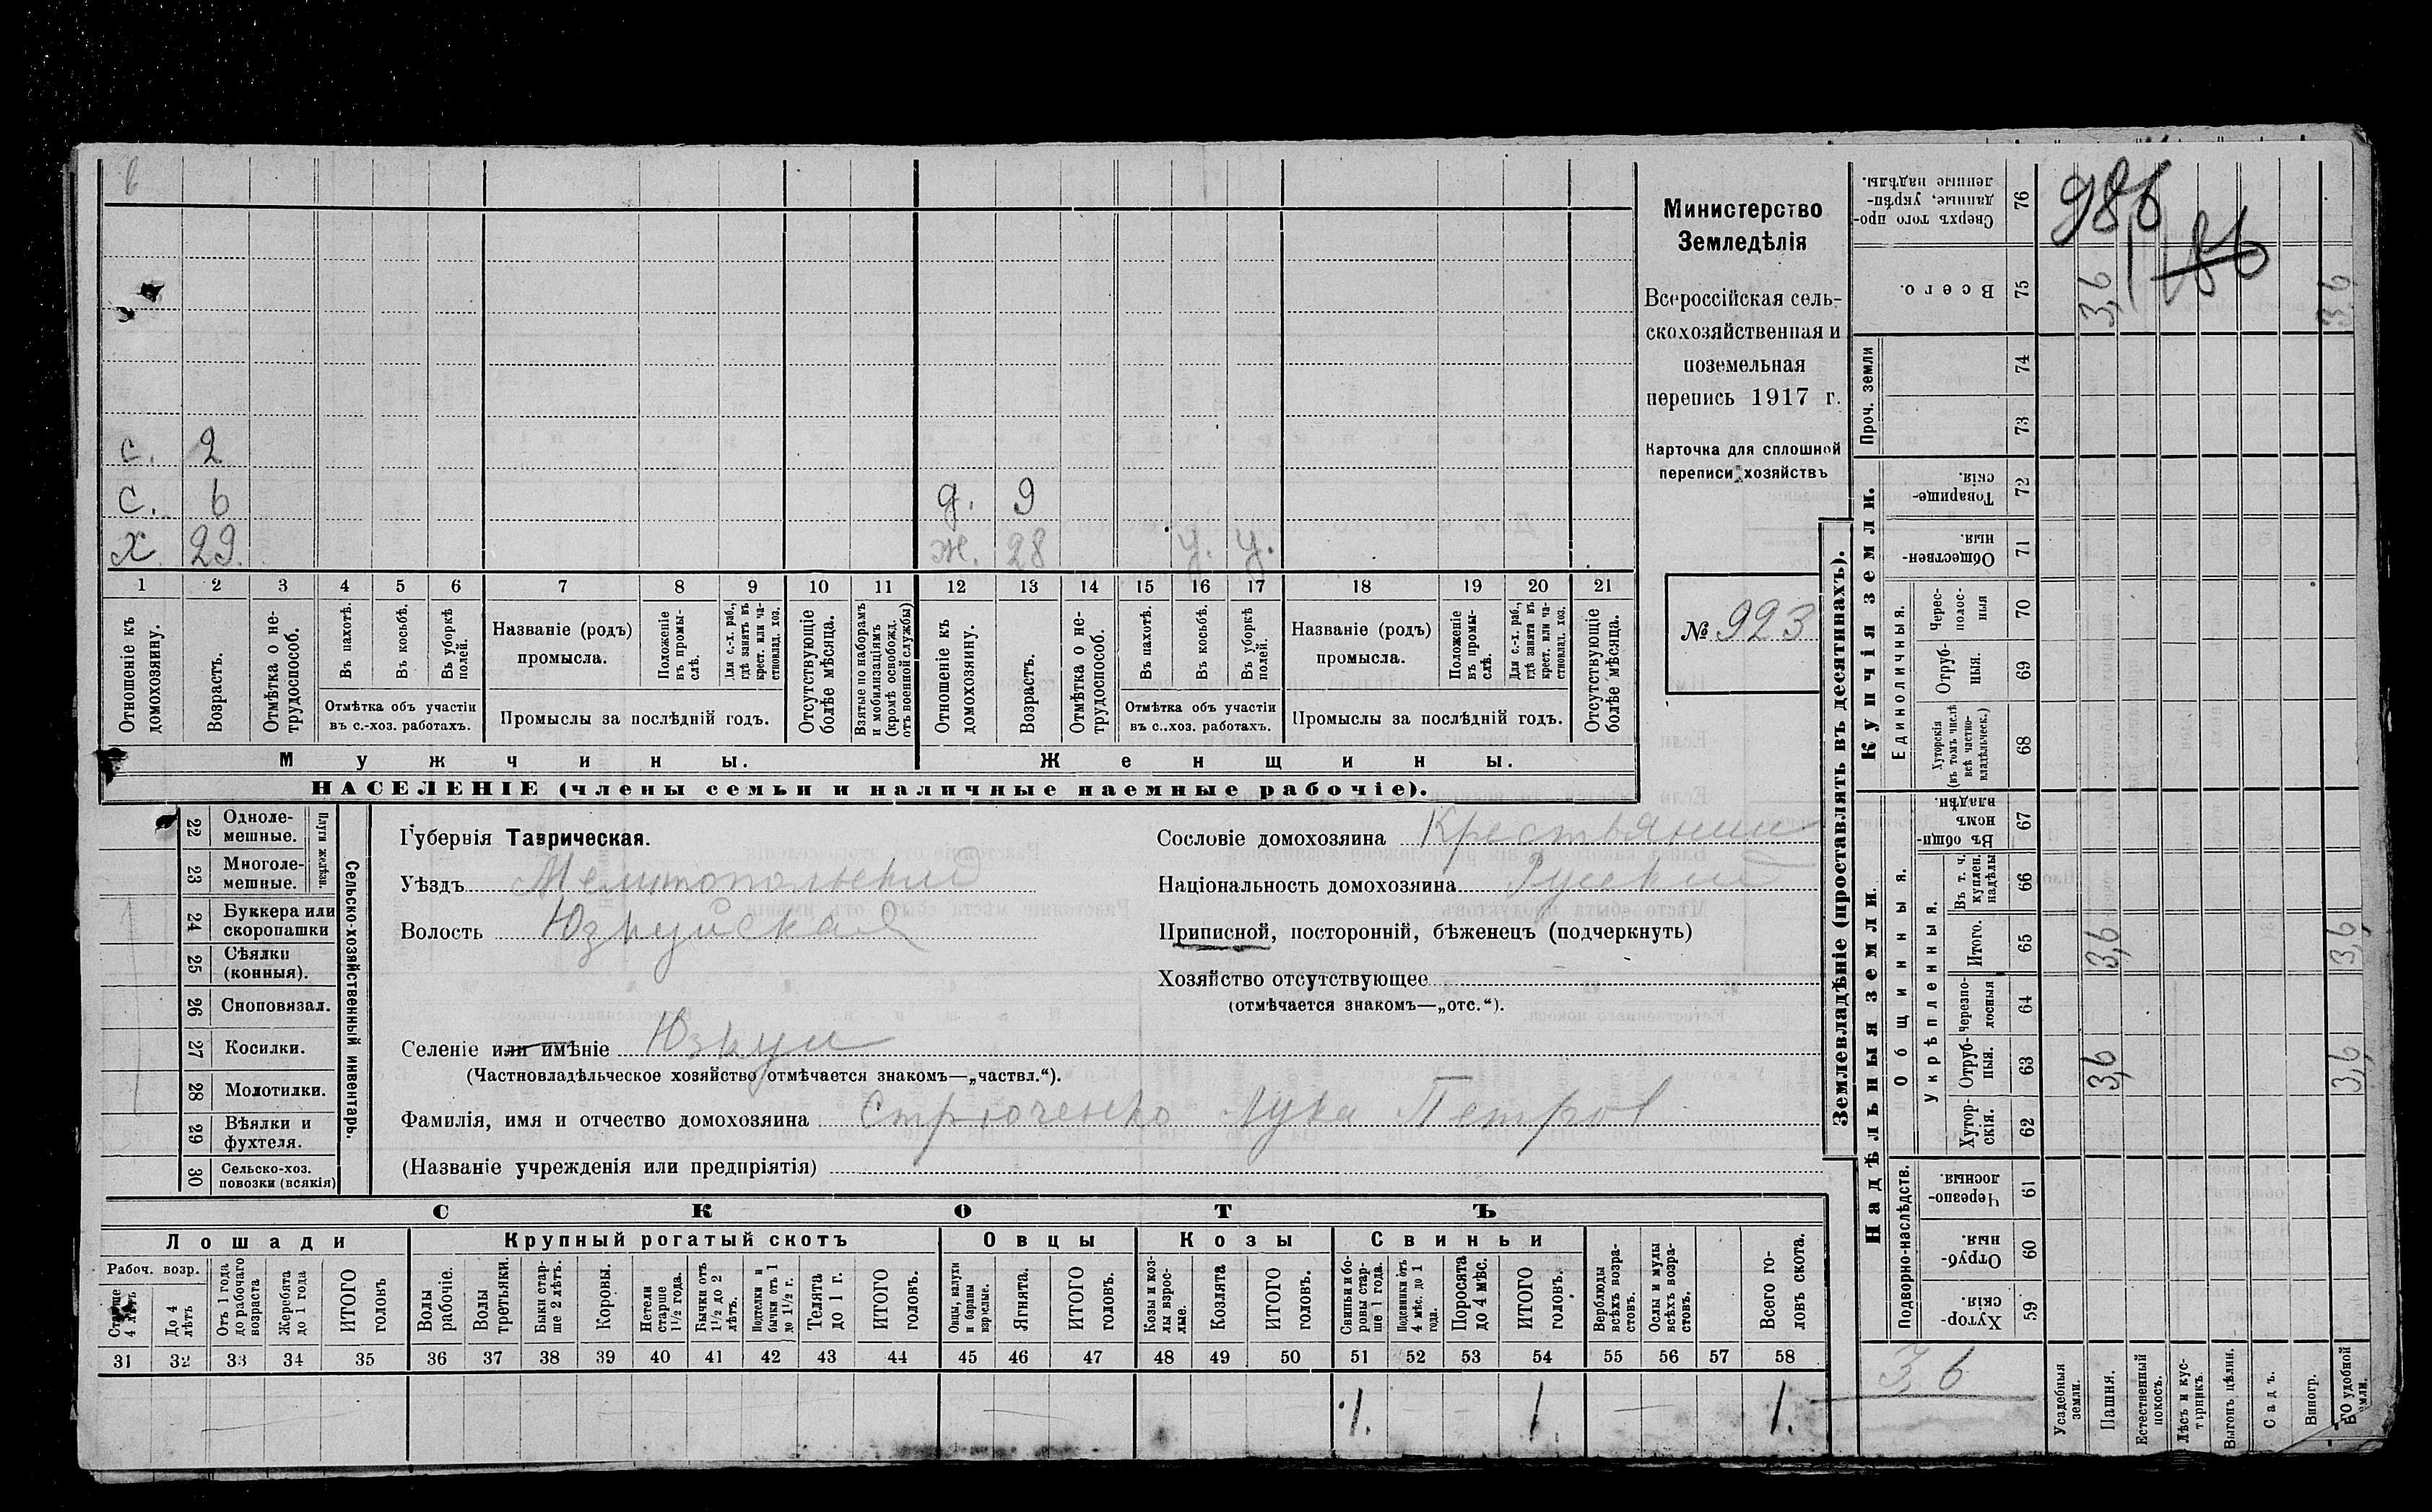 с. 2
С. 6 д. 9
Х 29. ж. 28 у. у.
1 2 3 4 5 6 7 8 9 10 11 12 13 14 15 16 17 18 19 20 21
Отношеніе къ домохозяину.
Возрастъ.
Отмѣтка о не-трудоспособ.
Въ пахотѣ.
Въ косьбѣ.
Въ уборкѣ полей.
Отмѣтка объ участіи
въ с.-хоз. работахъ.
Названіе (родъ)
промысла.
Положеніе въ промы-слѣ.
Для с.-х. раб., гдѣ занятъ въ крест. или ча-стновлад. хоз.
Промыслы за послѣдній годъ.
Отсутствующіе болѣе мѣсяца.
Взятые по наборамъ и мобилизаціямъ (кромѣ освобожд. отъ военной службы)
Отношеніе къ домохозяину.
Возрастъ.
Отмѣтка о не-трудоспособ.
Въ пахотѣ.
Въ косьбѣ.
Въ уборкѣ полей.
Отмѣтка объ участіи
въ с..хоз. работахъ.
Названіе (родъ)
промысла.
Положеніе въ промы-слѣ.
Для с.-х. раб., гдѣ занята въ крест. или ча-стновлад. хоз.
Промыслы за послѣдній годъ.
Отсутствующіе болѣе мѣсяца.
Мужчины. Женщины.
НАСЕЛЕНІЕ (члены семьи и наличные наемные рабочіе).
Министерство
Земледѣлія
Всероссійская сель-
скохозяйственная и
поземельная
перепись 1917 г.
Карточка для сплошной
переписи хозяйствъ
№ 923
22 Одноле-мешные.
23 Многоле-мешные.
Плуги желѣзн.
24 Буккера или скоропашки
25 Сѣялки (конныя).
26 Сноповязал.
27 Косилки.
28 Молотилки.
29 Вѣялки и фухтеля.
30 Сельско-хоз. повозки (всякія)
Сельско-хозяйственный инвентарь.
Губернія Таврическая.
Уѣздъ Мелитопольский
Волость Юзкуйская
Селеніе или имѣніе Юзкуи
(Частновладѣльческое хозяйство отмѣчается знакомъ—„частвл.“).
Фамилія, имя и отчество домохозяина Стрюченко Лука Петров
(Названіе учрежденія или предпріятія)
Сословіе домохозяина Крестьянин
Національность домохозяина Руский
Приписной, посторонній, бѣженецъ (подчеркнуть)
Хозяйство отсутствующее
(отмѣчается знакомъ—„отс.“).
СКОТЪ
Лошади Крупный рогатый скотъ Овцы Козы Свиньи
Рабоч. возр.
Старше 4 лѣтъ
До 4 лѣтъ
Отъ 1 года до рабочаго возраста
Жеребята до 1 года
ИТОГО головъ
Волы рабочіе.
Волы третьяки
Быки стар-ше 2 лѣтъ.
Коровы.
Нетели старше 1½ года.
Бычки отъ 1½ до 2 лѣтъ.
Подтелки и бычки отъ 1 до 1½ г.
Телята до 1 г.
ИТОГО головъ.
Овцы, валухи и бараны взрослые.
Ягнята.
ИТОГО головъ.
Козы и коз-лы взрос-лые.
Козлята
ИТОГО головъ.
Свиньи и бо-ровы стар-ше 1 года.
Подсвинки отъ 4 мѣс. до 1 года.
Поросята до 4 мѣс.
ИТОГО головъ.
Верблюды всѣхъ возра-стовъ.
Ослы и мулы всѣхъ возра-стовъ.
Всего го-ловъ скота.
31 32 33 34 35 36 37 38 39 40 41 42 43 44 45 46 47 48 49 50 51 52 53 54 55 56 57 58
1. 1 1.
Землевладѣніе (проставлять въ десятинахъ).
Надѣльныя земли. Купчія земли. Проч. земли
Подворно-наслѣдств.
Общинныя.
Укрѣпленныя.
Единоличныя.
59 Хутор-скія.
60 Отруб-ныя.
61 Черезпо-лосныя
62 Хутор-скія.
63 Отруб-ныя. 3,6 3,6
64 Черезпо-лосныя
65 Итого. 3,6 3,6
66 Въ т. ч. куплен. надѣлы
67 Въ общин-номъ владѣн.
68 Хуторскія (въ томъ числѣ всѣ частно-владѣльческ.)
69 Отруб-ныя.
70 Черес-полос-ныя
71 Обществен-ныя.
72 Товарище-скія.
73
74
75 Всего. 3,6 3,6
76 Сверхъ того про-данные, укрѣп-ленные надѣлы.
986
186
3,6
Усадебныя земли.
Пашня.
Естественный покосъ.
Лѣсъ и кус-тарникъ.
Выгонъ цѣлин.
Садъ.
Виногр.
удобной земли.